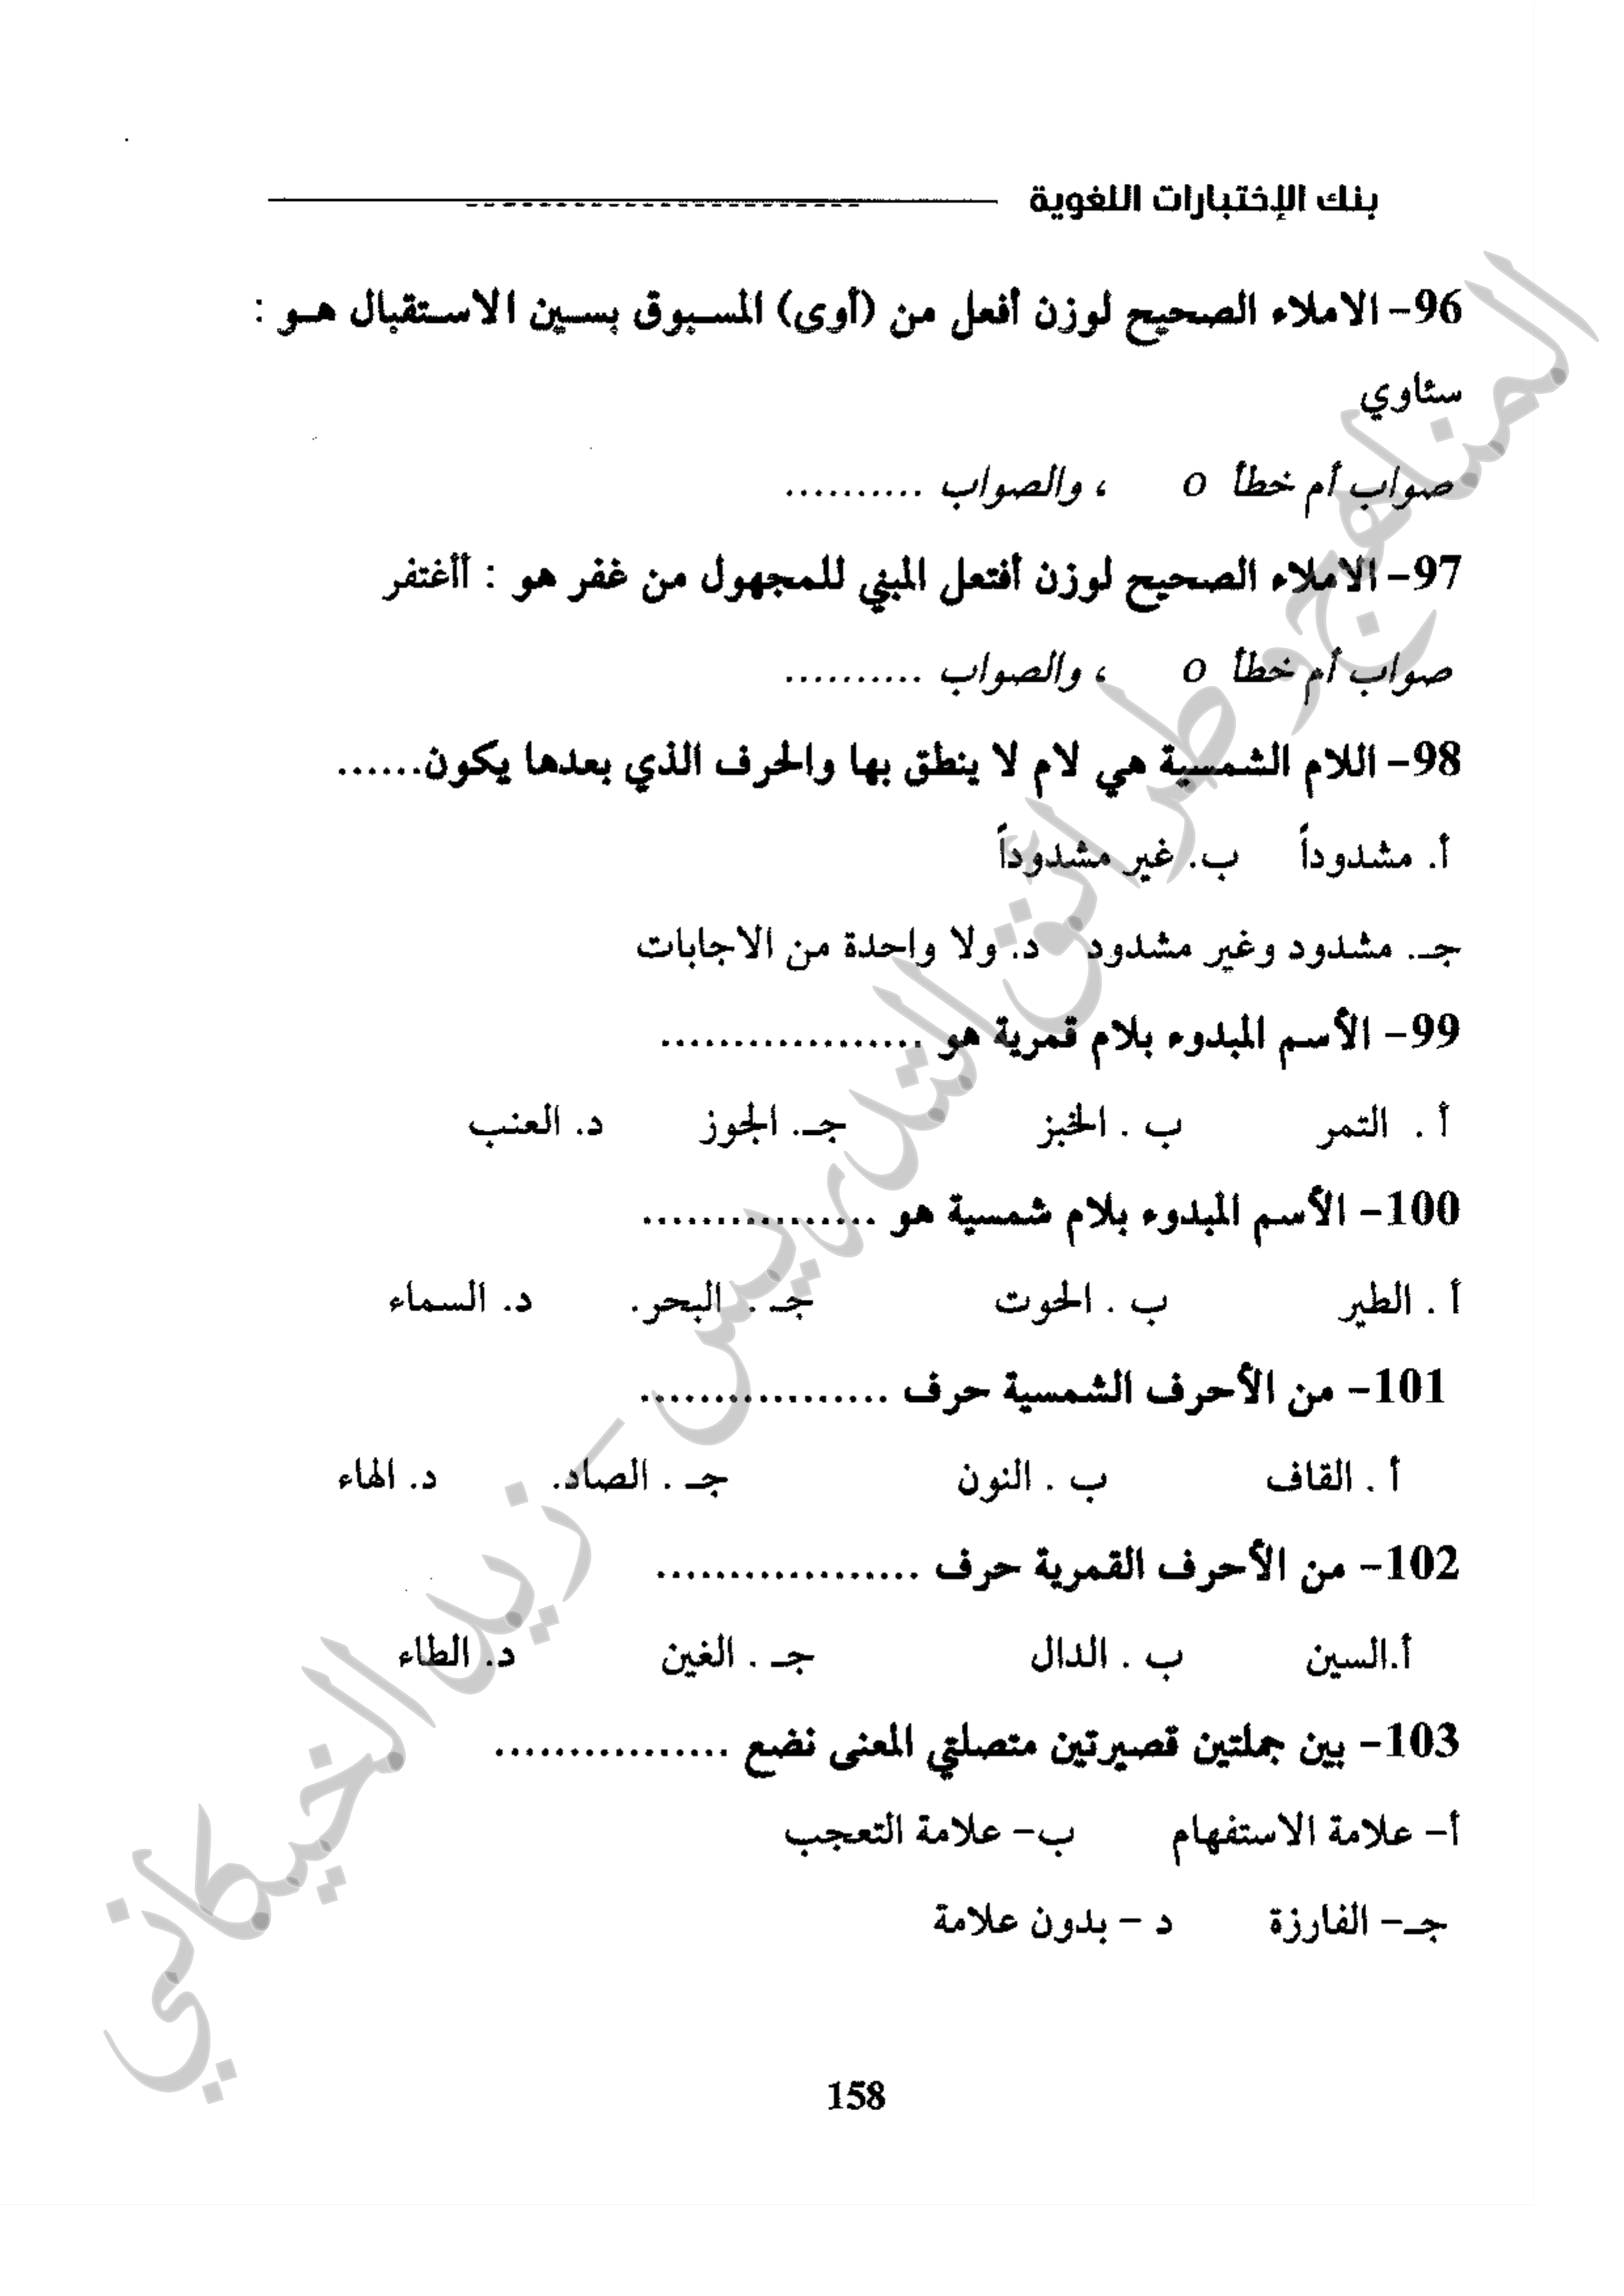 بنك الإختبارات اللغوية
96- الاملاء الصحيح لوزن أفعل من (أوى) المسبوق بسين الاستقبال هو :
سئاوي
صواب أم خطأ o ، والصواب ..........
97- الاملاء الصحيح لوزن أفتعل المبني للمجهول من غفر هو : أأغتفر
صواب أم خطأ o ، والصواب ..........
98- اللام الشمسية هي لام لا ينطق بها والحرف الذي بعدها يكون......
أ. مشدوداً ب. غير مشدوداً
جـ. مشدود وغير مشدود د. ولا واحدة من الاجابات
99- الأسم المبدوء بلام قمرية هو ..................
أ . التمر ب . الخبز جـ. الجوز د. العنب
100- الأسم المبدوء بلام شمسية هو ................
أ . الطير ب . الحوت جـ . البحر. د. السماء
101- من الأحرف الشمسية حرف .................
أ . القاف ب . النون جـ . الصاد. د. الهاء
102- من الأحرف القمرية حرف ..................
أ.السين ب . الدال جـ . الغين د. الطاء
103- بين جملتين قصيرتين متصلتي المعنى نضع ................
أ- علامة الاستفهام ب- علامة التعجب
جـ- الفارزة د - بدون علامة
158
المناهج وطرائق التدريس - زيد الخيكاني